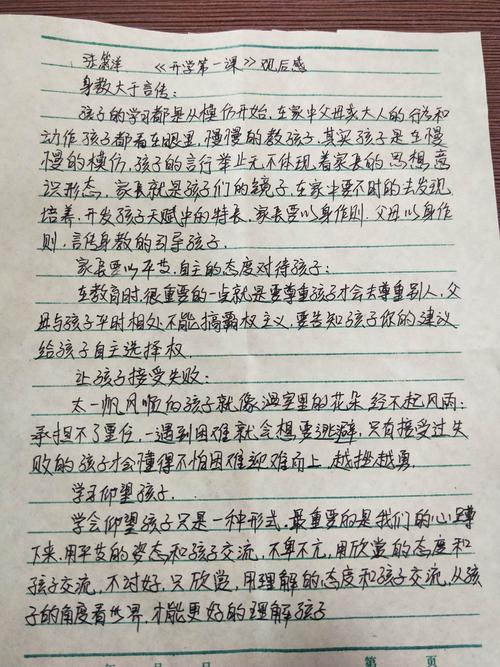 张 洋 《开学第一课》观后感
身教大于言传:
孩子的学习都是从模仿开始,在家中父母亲大人的行为和
动作孩子都看在眼里,慢慢的教孩子,其实孩子是在慢
慢的模仿,孩子的言行举止无不体现着家长的思想,意
识形态,家长就是孩子们的镜子,在家中要不时的去发现,
培养,开发孩子天赋中的特长,家长要以身作则.父母以身作
则,言传身教的引导孩子.
家长要以平等,自主的态度对待孩子:
在教育时,很重要的一点就是要尊重孩子才会去尊重别人,父
母与孩子平时相处不能搞霸权主义,要告知孩子你的建议
给孩子自主选择权.
让孩子接受失败:
太一帆风顺的孩子就像温室里的花朵经不起风雨;
承担不了重任,一遇到困难就会想要逃避,只有接受过失
败的孩子才会懂得不怕困难迎难而上,越挫越勇.
学习仰望孩子.
学会仰望孩子只是一种形式,最重要的是我们的心蹲
下来,用平等的姿态和孩子交流,不卑不亢,用欣赏的态度和
孩子交流,不讨好,只欣赏,用理解的态度和孩子交流,从孩
子的角度看世界,才能更好的理解孩子
年 月 日 第 页